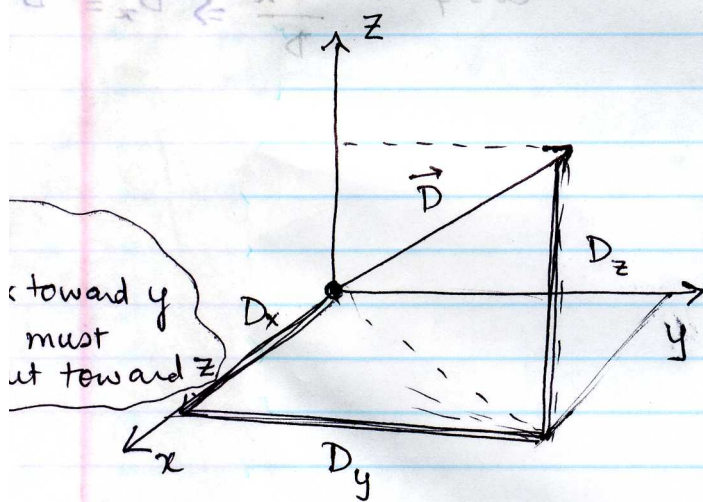 z
D⃗
D_z
x toward y
must
ut toward z
D_x
y
x
D_y